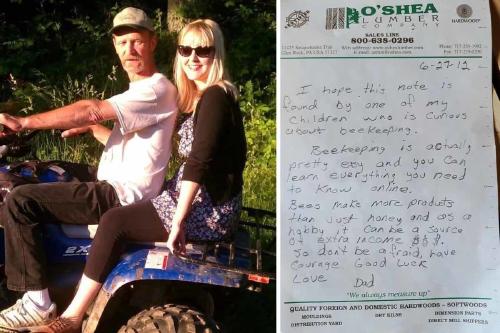 O'SHEA
LUMBER
COMPANY
HARDWOOD
SALES LINE
800-638-0296
6-27-12
I hope this note is
found by one of my
children who is curious
about beekeeping.
Beekeeping is actually
pretty esy and you can
learn everything you need
to know online.
Bees make more products
than just honey and as a
hobby it can be a source
of extra income $$$.
So don't be afraid, have
courage Good Luck
Love Dad
"We always measure up"
QUALITY FOREIGN AND DOMESTIC HARDWOODS - SOFTWOODS
MOULDINGS DRY KILNS DIMENSION PARTS
DISTRIBUTION YARD DIRECT MILL SHIPPERS